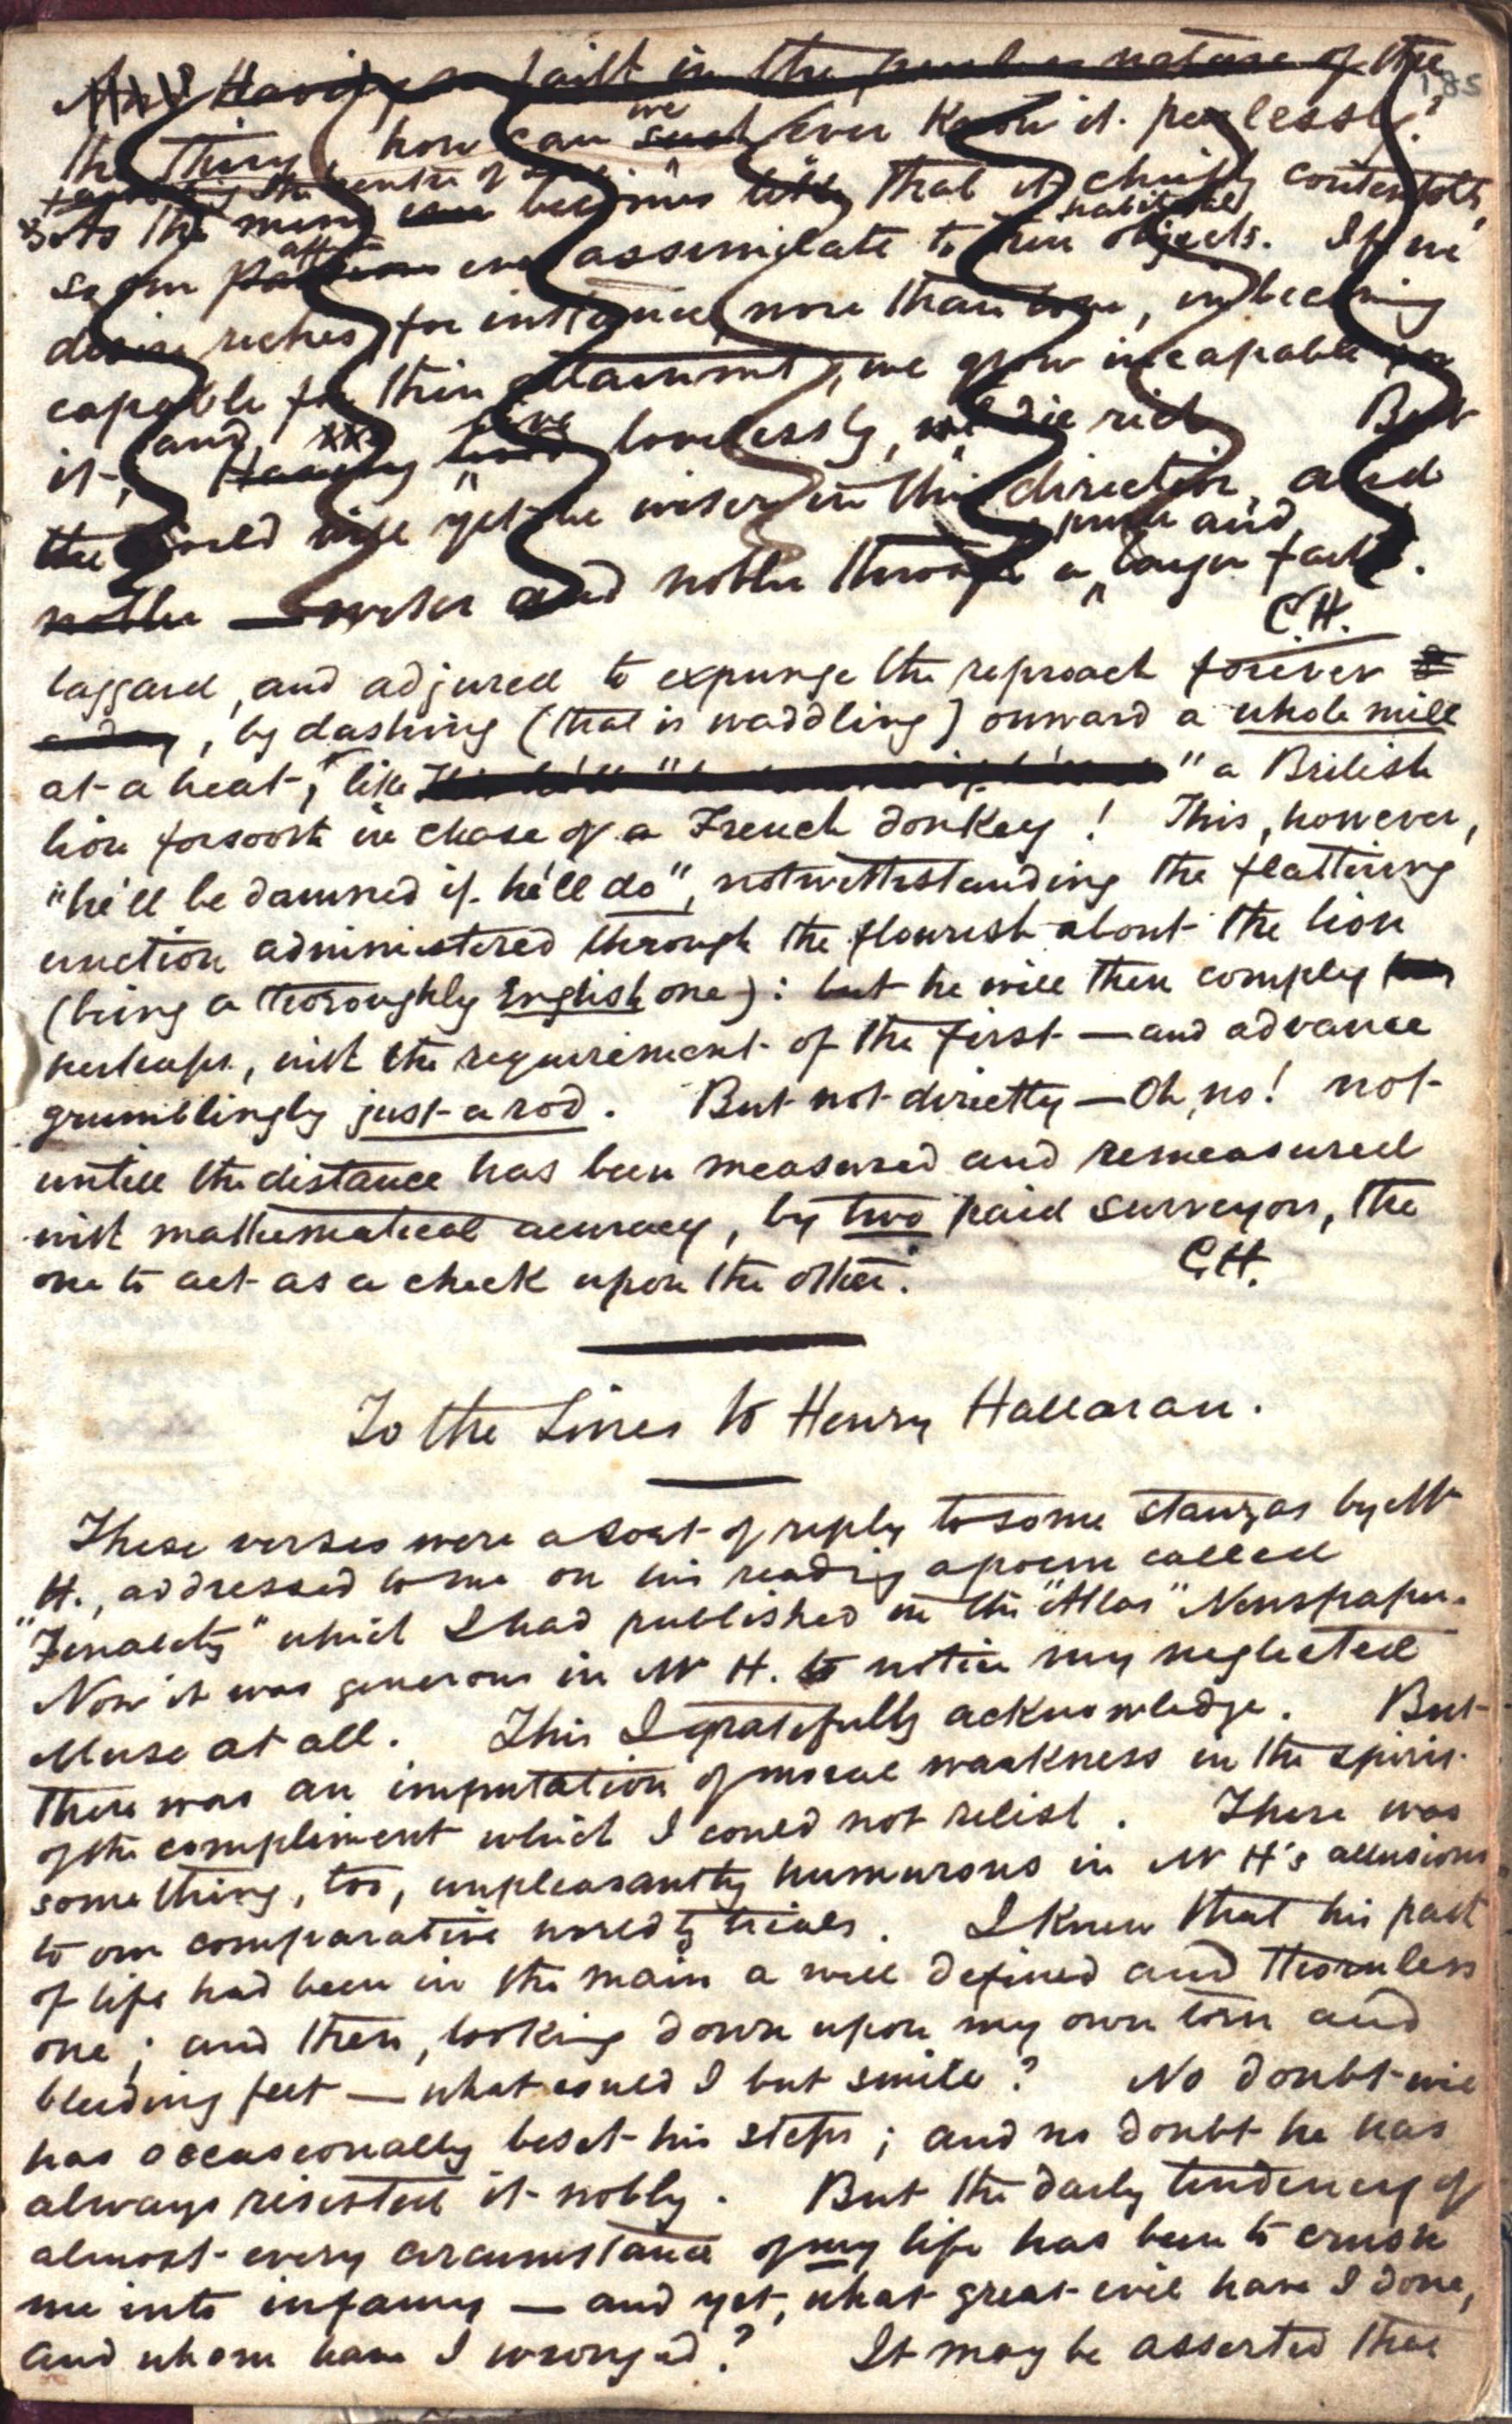 Having faith in the nature of the
185
the thing, how can we ever know it peerlessly?
the centre of
As the mind becomes that it chiefly contemplates,
so our affections ever assimilate to their habitual objects. If we
desire riches, for instance, more than love, in becoming
capable for their attainment, we grow incapable for
it, and live lovelessly, die rich. But
the world will yet be wiser in this direction, and
nobler — wiser and nobler through a purer and larger faith.
C.H.
laggard, and adjured to expunge the reproach forever
, by dashing (that is waddling) onward a whole mile
at a heat, like "a British
lion forsooth in chase of a French donkey! This, however,
"he'll be damned if he'll do", notwithstanding the flattering
unction administered through the flourish about the lion
(being a thoroughly English one): but he will then comply
perhaps, with the requirement of the first — and advance
grumblingly just a rod. But not directly — Oh, no! not
untill the distance has been measured and remeasured
with mathematical acuracy, by two paid surveyors, the
one to act as a check upon the other.
C.H.
To the Lines to Henry Hallaran.
These verses were a sort of reply to some stanzas by Mr
H., addressed to me on his reading a poem called
"Finality" which I had published in the "Atlas" Newspaper.
Now it was generous in Mr H. to notice my neglected
Muse at all. This I gratefully acknowledge. But
there was an imputation of moral weakness in the spirit
of the compliment which I could not relish. There was
something, too, unpleasantly humurous in Mr H's allusions
to our comparative worldly trials. I knew that his path
of life had been in the main a well defined and thornless
one; and then, looking down upon my own torn and
bleeding feet — what could I but smile? No doubt evil
has occasionally beset his steps; and no doubt he has
always resisted it nobly. But the daily tendency of
almost every circumstance of my life has been to crush
me into infamy — and yet, what great evil have I done,
and whom have I wronged? It may be asserted that